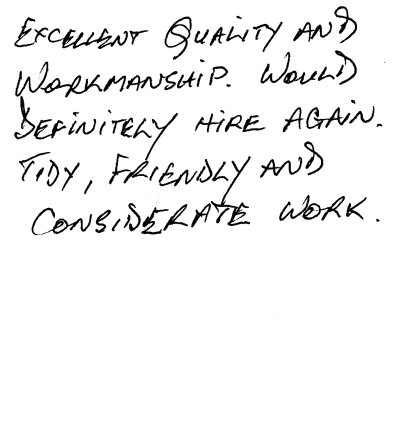 EXCELLENT QUALITY AND
WORKMANSHIP. WOULD
DEFINITELY HIRE AGAIN.
TIDY, FRIENDLY AND
CONSIDERATE WORK.